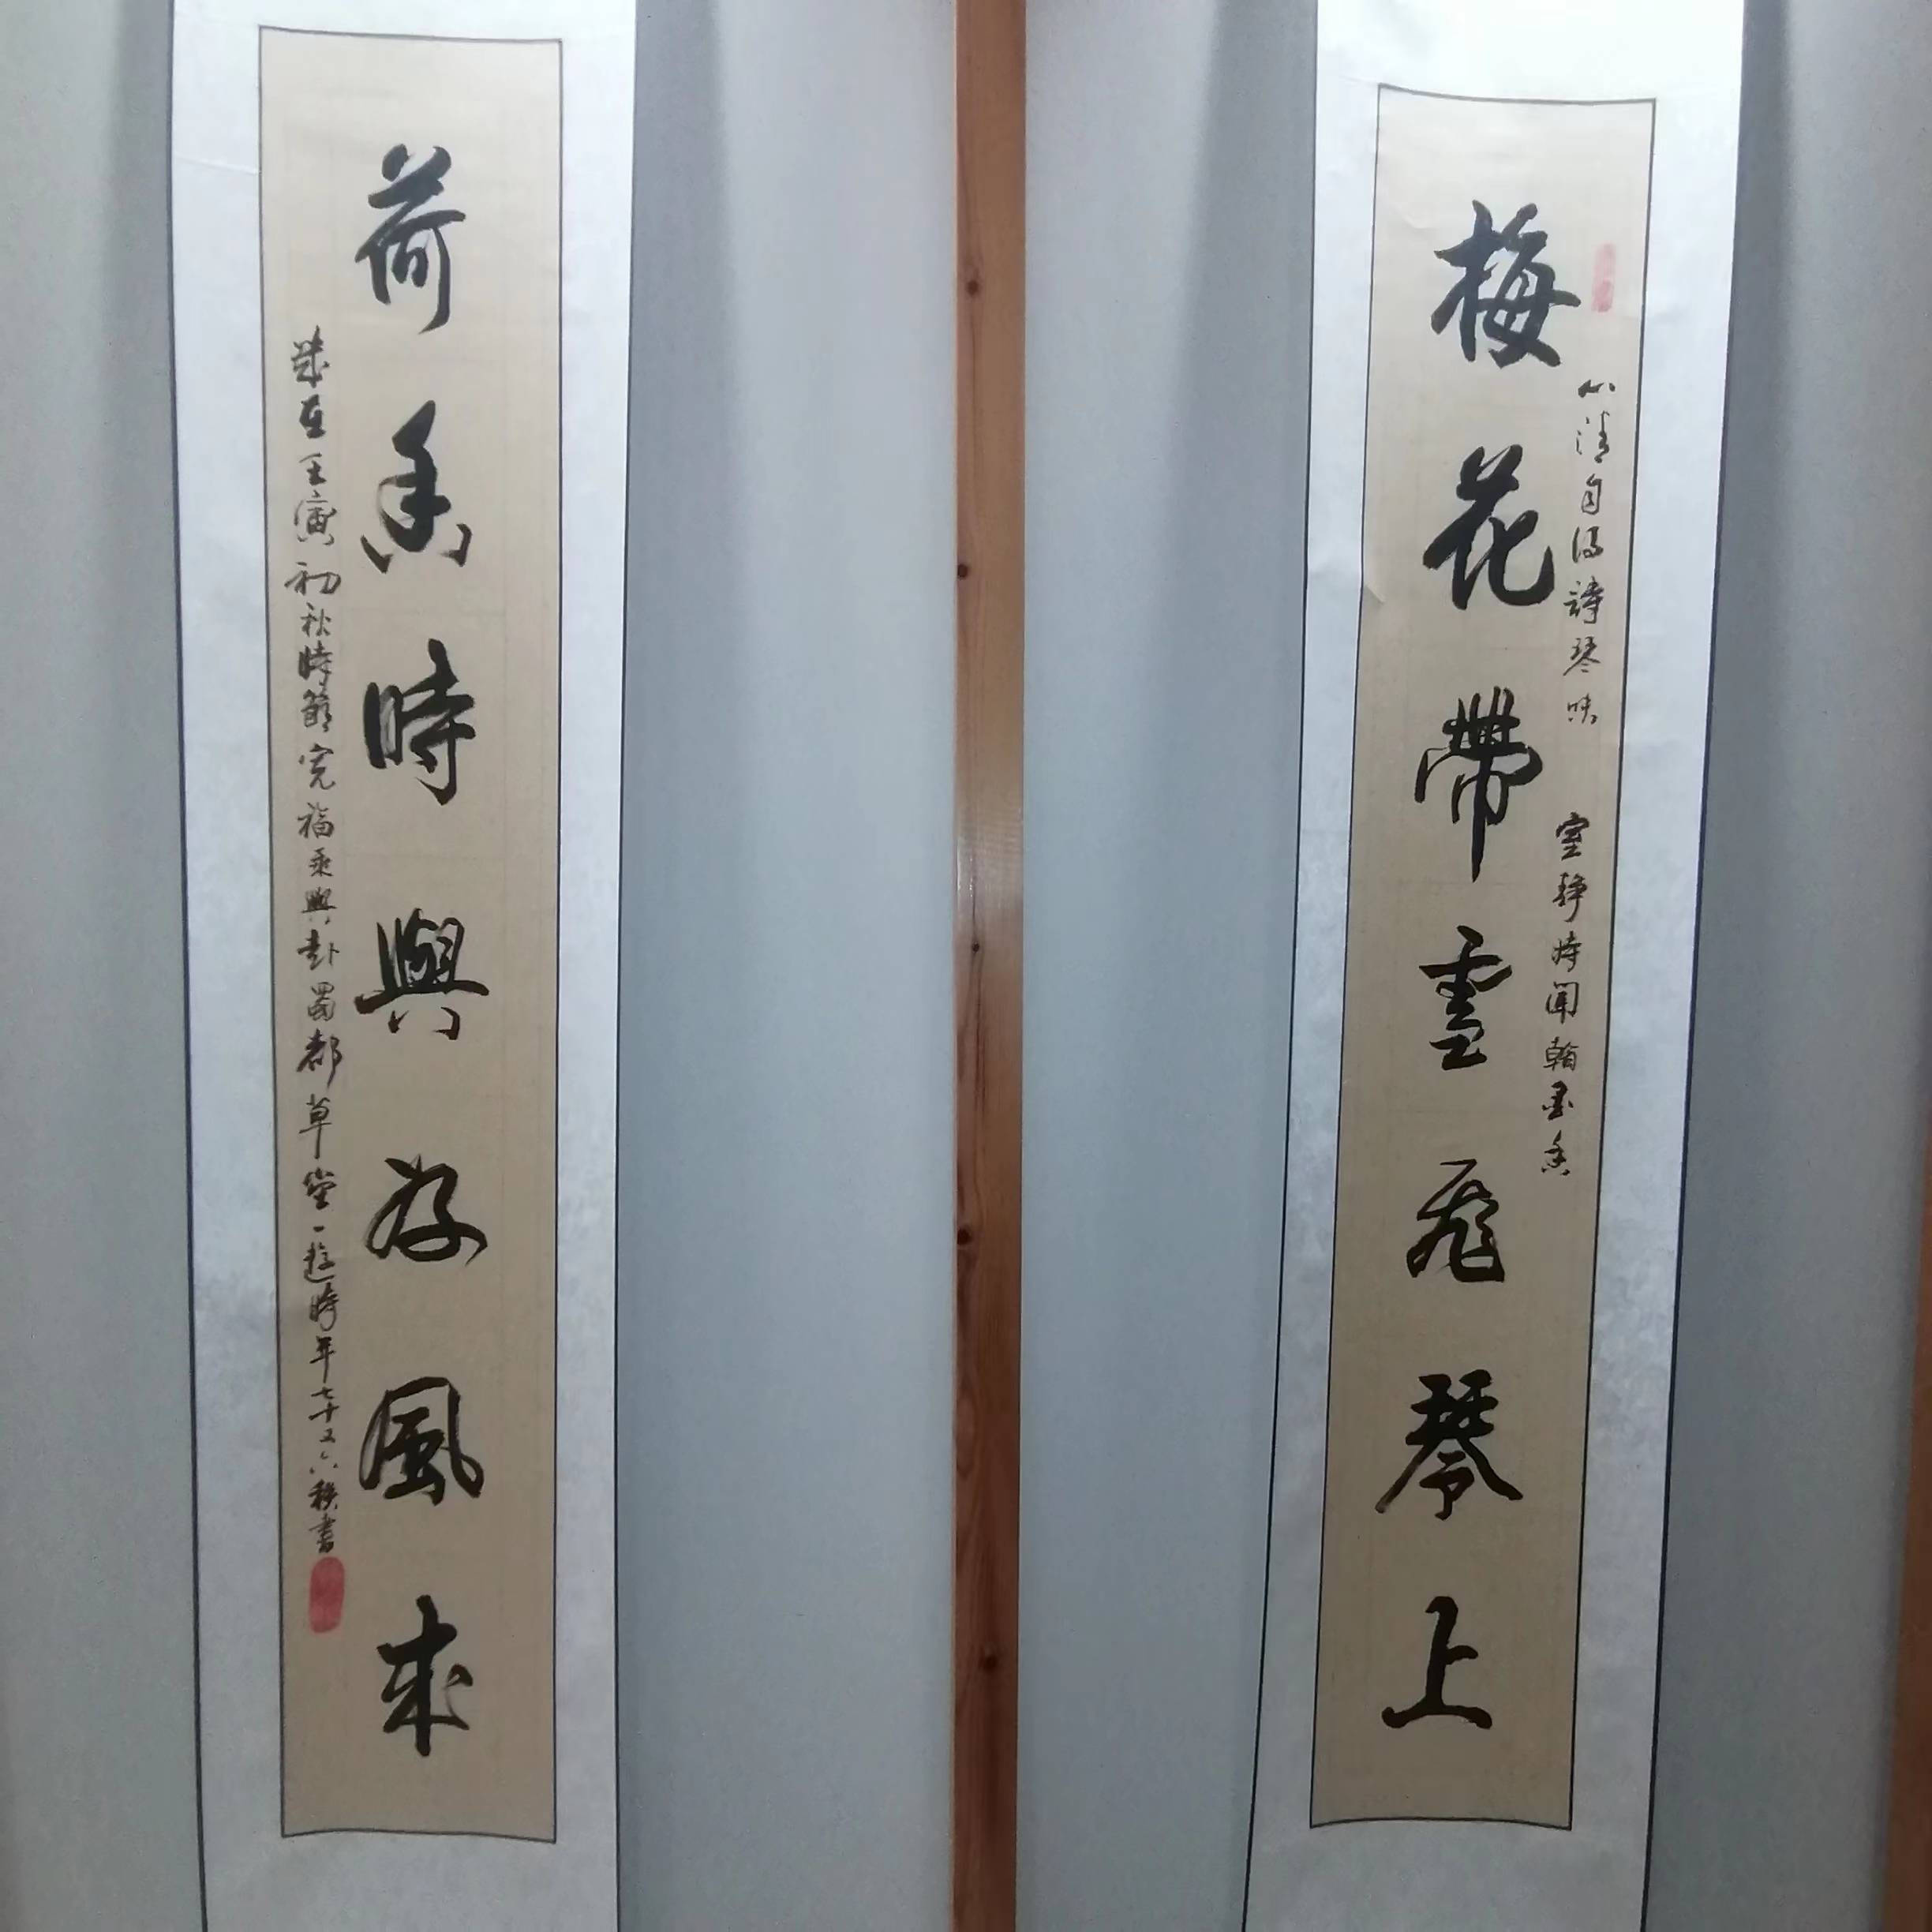 心清自得詩琴味 室靜時聞翰墨香
梅花帶雪飛琴上
荷香時與好風來
歲在壬寅初秋時節福乘興赴蜀都草堂一遊時年七十又六秩書